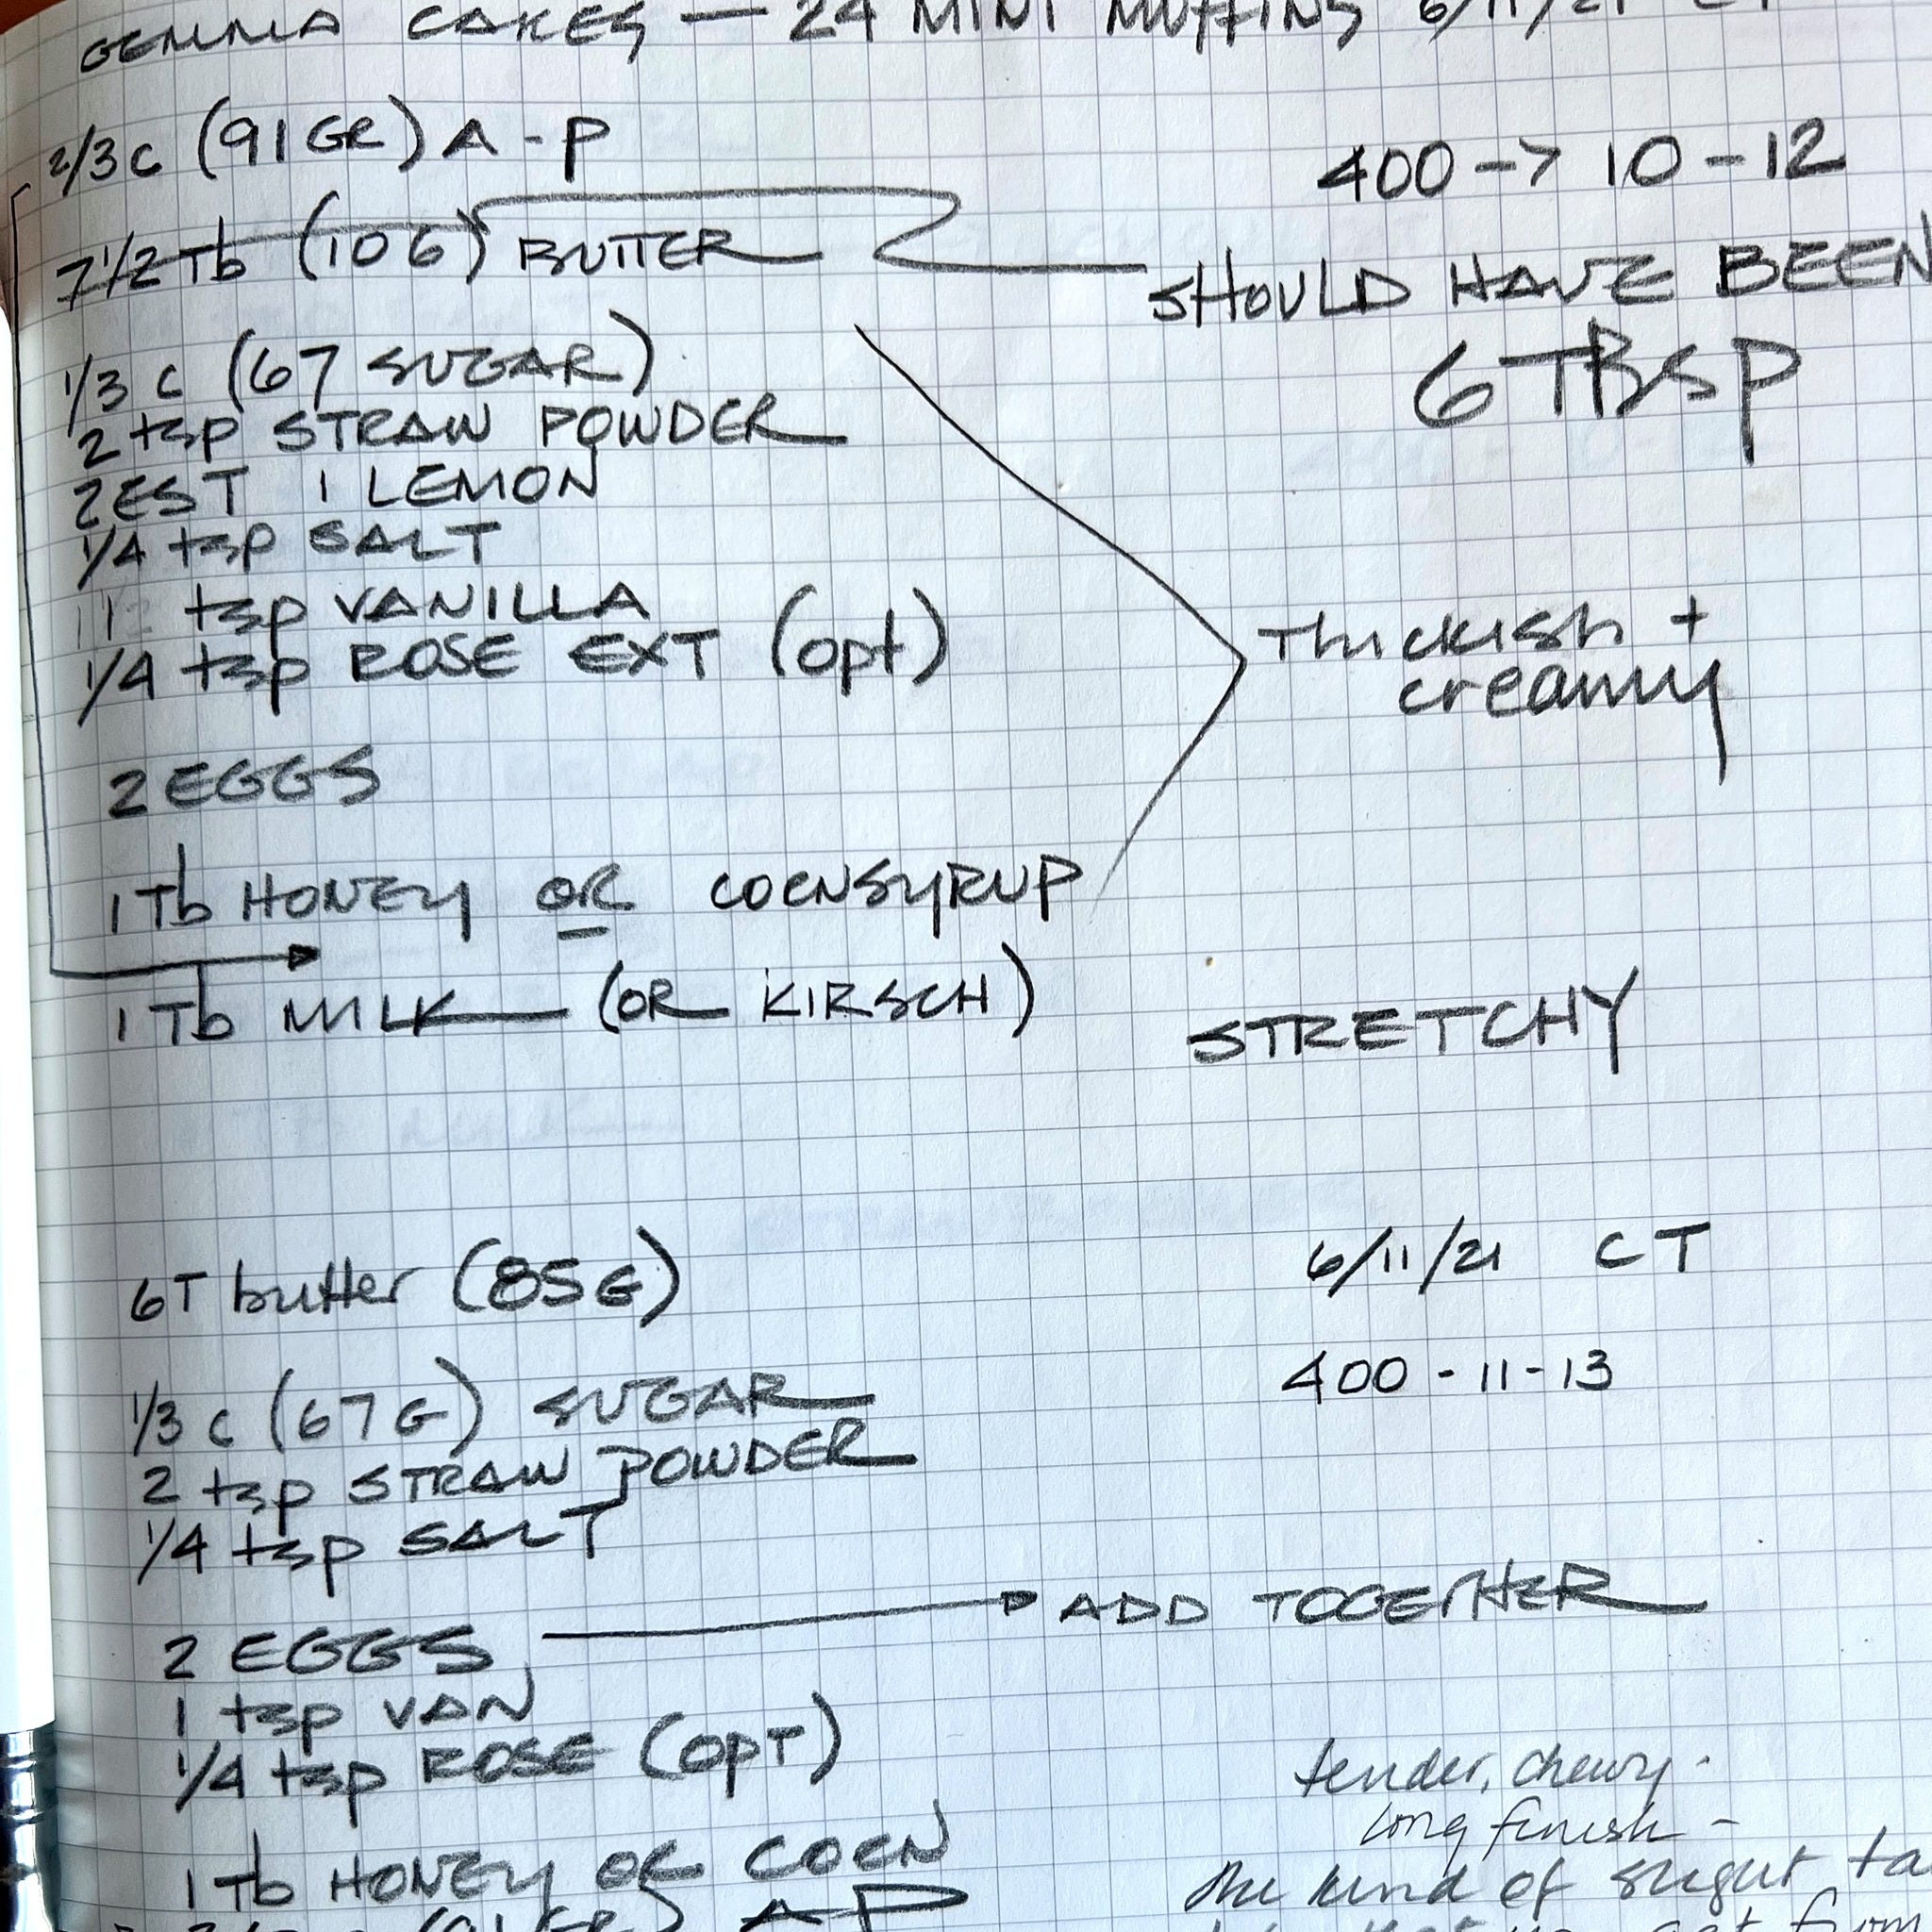 GEMMA CAKES — 24 MINI MUFFINS 6/11/21 CT
2/3 C (91 GR) A-P
400 -> 10-12
7 1/2 Tb (106) BUTTER
SHOULD HAVE BEEN
6 TBSP
1/3 C (67 SUGAR)
2 tsp STRAW POWDER
ZEST 1 LEMON
1/4 tsp SALT
1 tsp VANILLA
1/4 tsp ROSE EXT (opt)
Thickish +
creamy
2 EGGS
1 Tb HONEY OR CORNSYRUP
1 Tb MILK (OR KIRSCH)
STRETCHY
6T butter (85G)
6/11/21 CT
400 - 11-13
1/3 C (67G) SUGAR
2 tsp STRAW POWDER
1/4 tsp SALT
2 EGGS → ADD TOGETHER
1 tsp VAN
1/4 tsp ROSE (OPT)
tender, chewy -
long finish -
1 Tb HONEY OR CORN
the kind of slight ta
AP